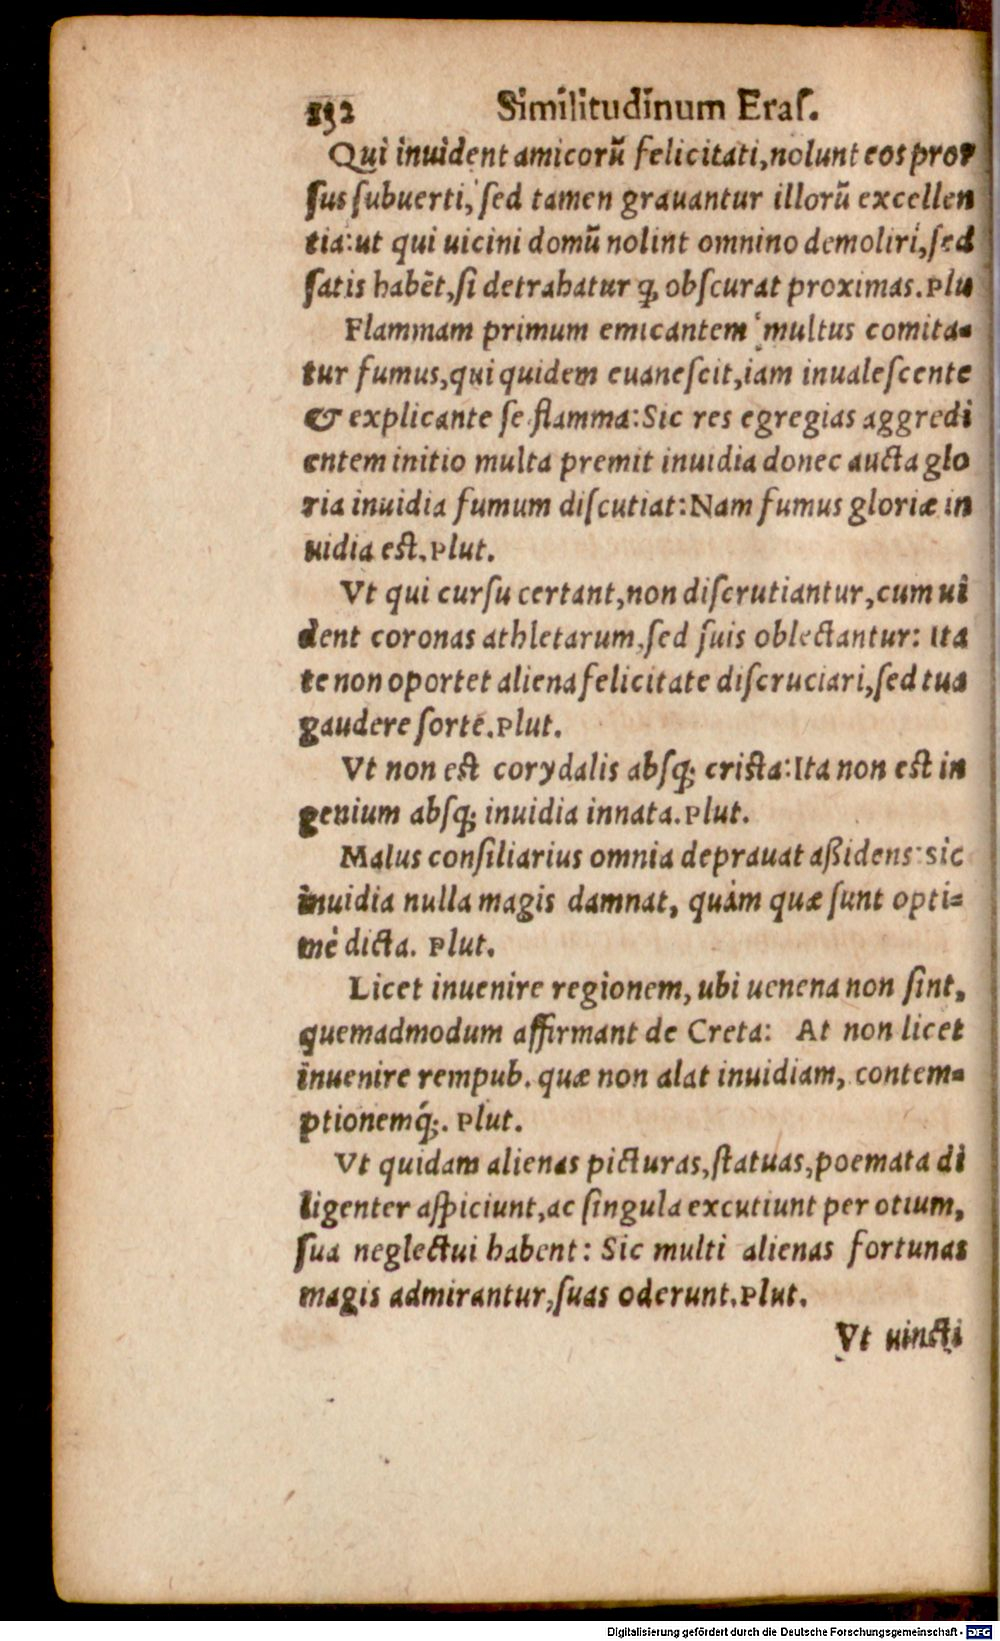 132 Similitudinum Eraſ.
Qui inuident amicorũ felicitati, nolunt eos pror
ſus ſubuerti, ſed tamen grauantur illorũ excellen
tia: ut qui uicini domũ nolint omnino demoliri, ſed
ſatis habẽt, ſi detrahatur q, obſcurat proximas. Plu
Flammam primum emicantem multus comita-
tur fumus, qui quidem euaneſcit, iam inualeſcente
& explicante ſe flamma: Sic res egregias aggredi
entem initio multa premit inuidia donec aucta glo
ria inuidia fumum diſcutiat: Nam fumus gloriæ in
uidia eſt. Plut.
Vt qui curſu certant, non diſcrutiantur, cum ui
dent coronas athletarum, ſed ſuis oblectantur: Ita
te non oportet aliena felicitate diſcruciari, ſed tua
gaudere ſorte. Plut.
Vt non eſt corydalis abſq; criſta: Ita non eſt in
genium abſq; inuidia innata. Plut.
Malus conſiliarius omnia deprauat aßidens: sic
inuidia nulla magis damnat, quàm quæ ſunt opti-
mè dicta. Plut.
Licet inuenire regionem, ubi uenena non ſint,
quemadmodum affirmant de Creta: At non licet
inuenire rempub. quæ non alat inuidiam, contem-
ptionemq́;. Plut.
Vt quidam alienas picturas, ſtatuas, poemata di
ligenter aſpiciunt, ac ſingula excutiunt per otium,
ſua neglectui habent: Sic multi alienas fortunas
magis admirantur, ſuas oderunt. Plut.
Vt uincti
Digitalisierung gefördert durch die Deutsche Forschungsgemeinschaft - DFG